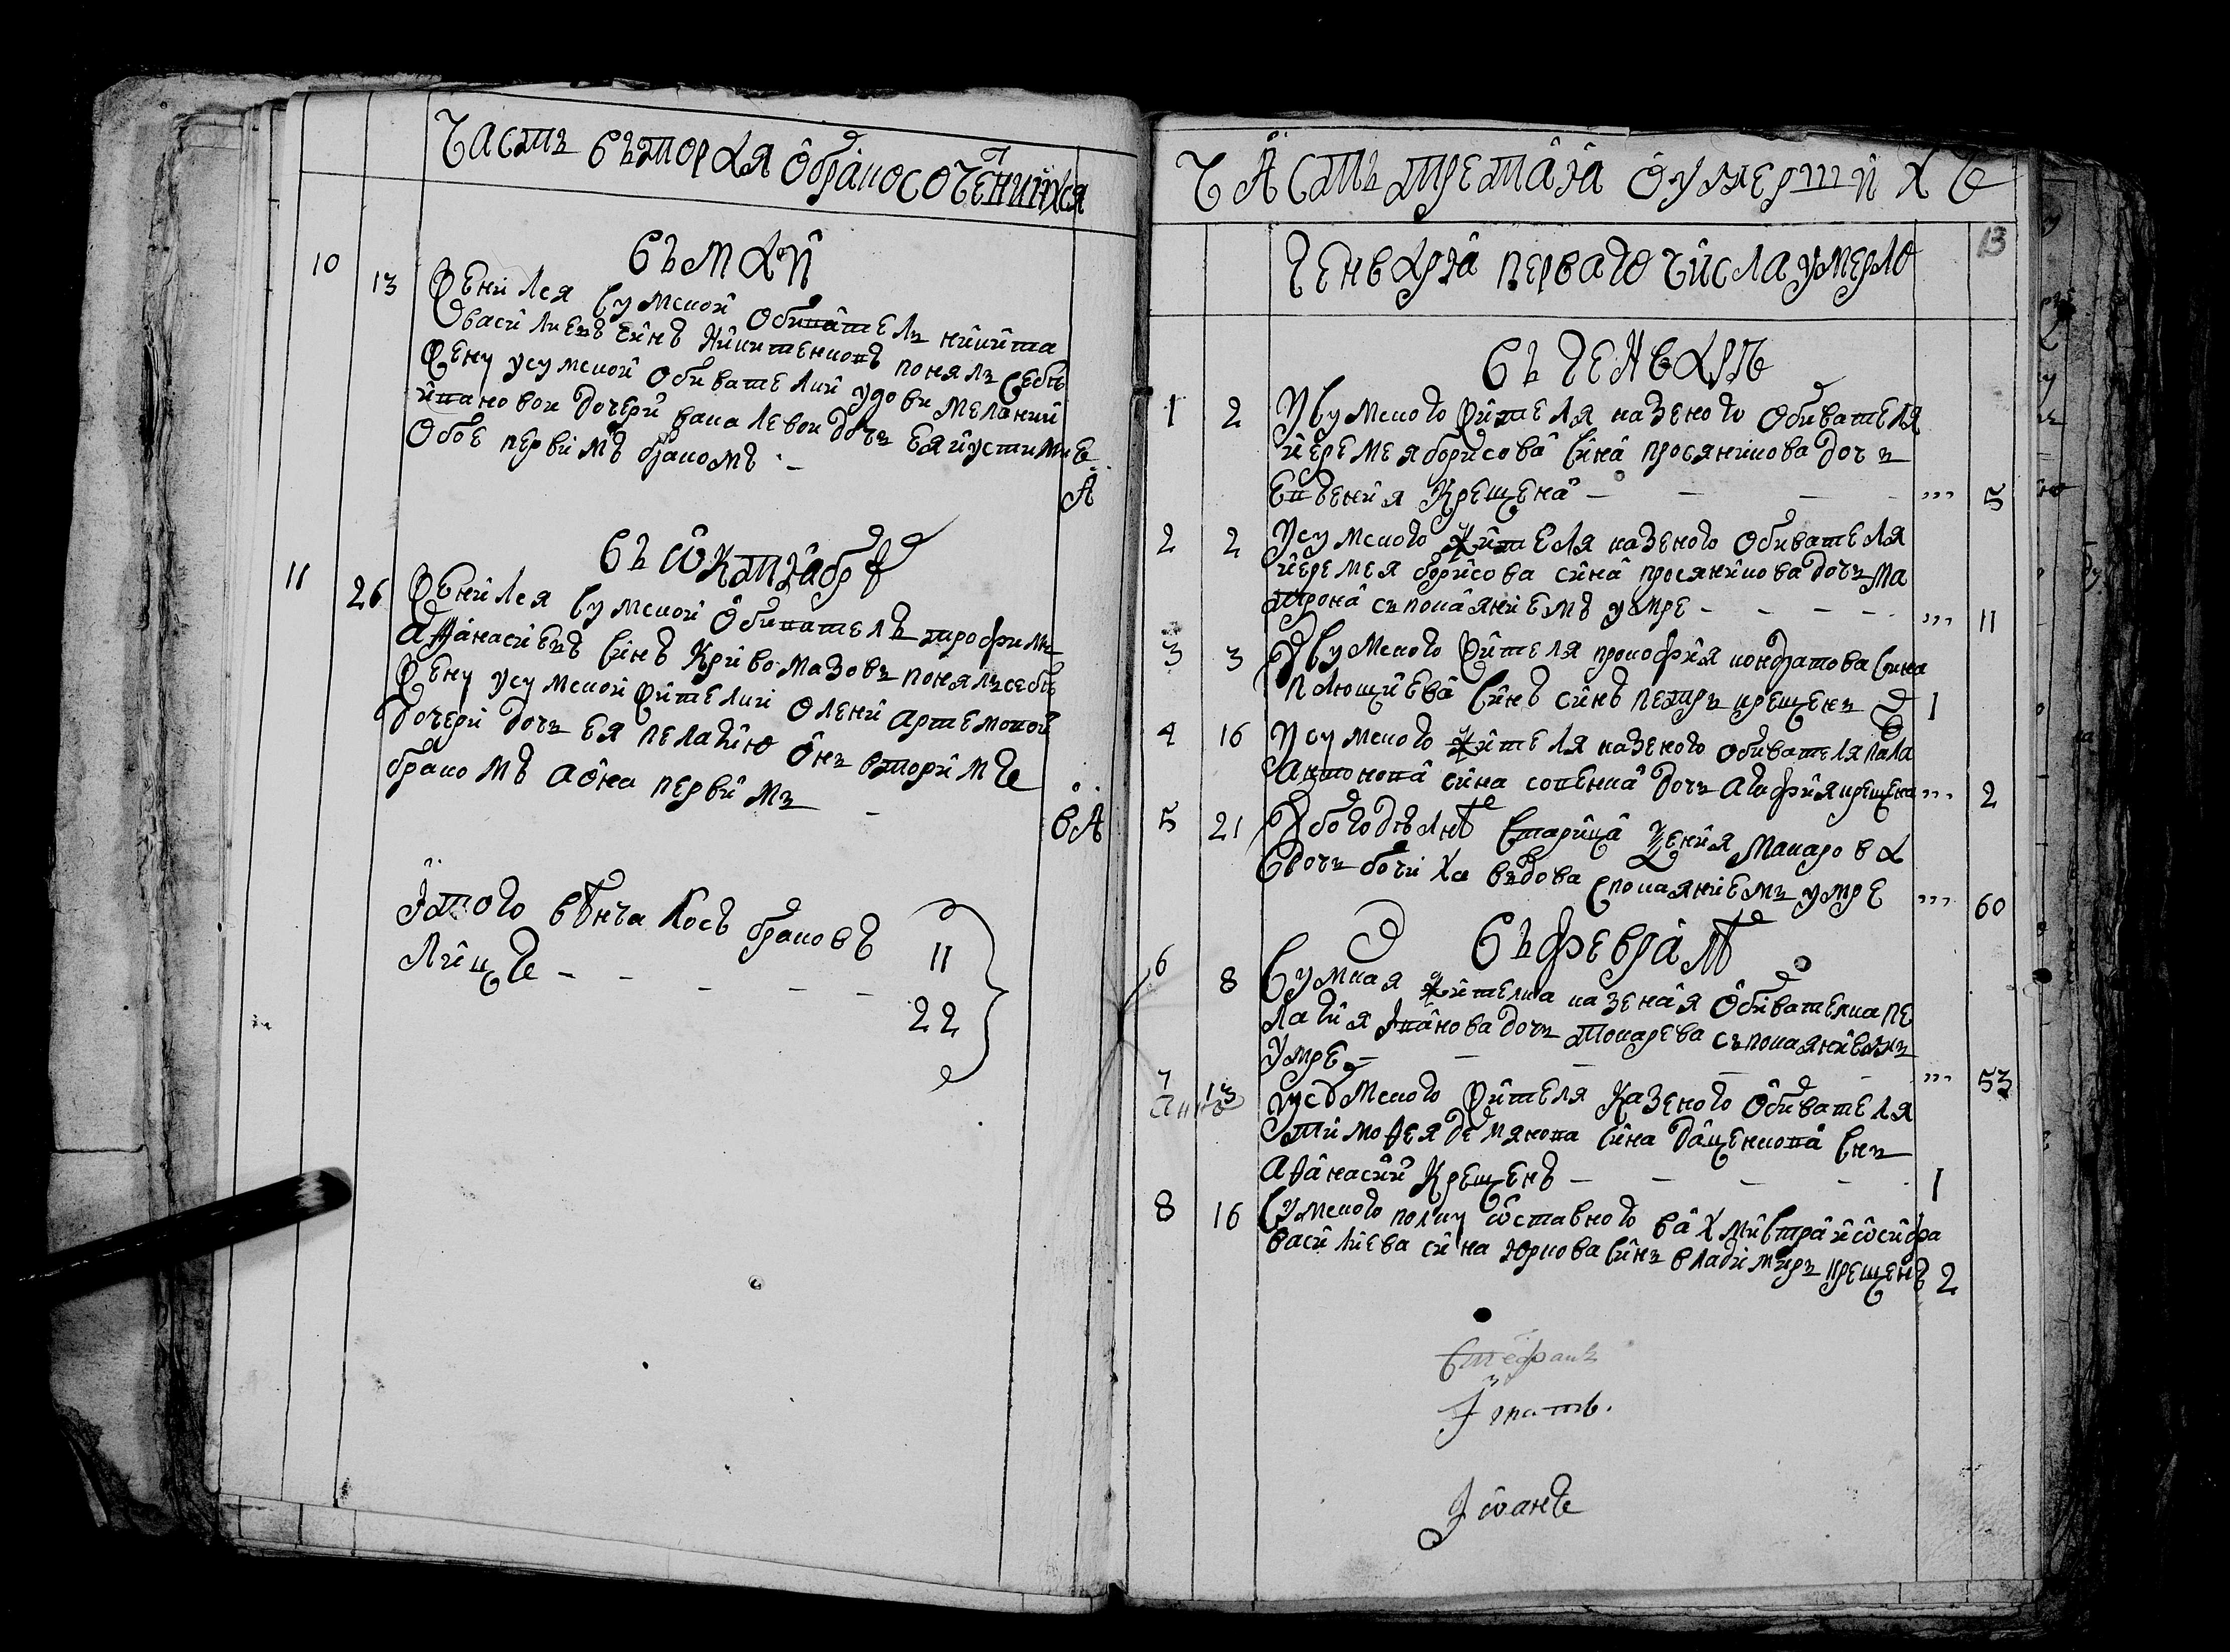 Часть вътораѧ ѻбракосочетнихсѧ
въ маи
10 13 Женилсѧ сумской обиватель никита
василиевъ синъ никитенковъ понялъ себѣ
жену усумской обивателки удови мелании
ивановои дочери
обое первимъ бракомъ
А
въ ѡктꙗбрѣ
11 26 Женилсѧ сумской обиватель трофимъ
аѳанасиевъ синъ кривомазовъ понялъ себѣ
жену усумской жителки олени артемовой
дочери дочь ея пелагию онъ вторимъ
бракомъ аона первимъ
в А
Итого вѣнчалось браковъ 11
лицъ 22
Часть третаꙗ оумерших ъ
13
генварꙗ перваго числа умерло
въ генварѣ
1 2 Усумского жителя казеного обивателя
иеремея борисова сина просяникова дочь
евгения крещена ,,, 5
2 2 Усумского жителя казеного обивателя
иеремея борисова сина просяникова дочь ма
трона съпокаяниемъ умре ,,, 11
3 3 Усумского жителя прокофия кондратова сина
плющиева синъ синъ петръ крещенъ 1
4 16 Усумского жителя казеного обивателя
антонова сина дочь агафия крещена ,,, 2
5 21 Убогодѣлнѣ старица ѯения макарова
дочь вьдова спокаяниемъ умре ,,, 60
въ февралѣ
6 8 Сумская жителка казеная обивателка пе
лагия иванова дочь токарева съпокаяниемъ
умре ,,, 53
7 13 Усумского жителя казеного обивателя
тимоѳея демянова сина даценкова снъ
аѳанасий крещенъ 1
8 16 Сумского полку ѿставного вахмистра иѡсифа
василиева сина юркова синъ владимиръ крещенъ 2
Стефанъ
Игнатъ.
Иѡанъ